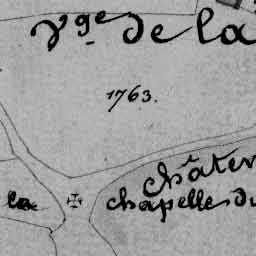 Vge de la
1763.
Châten
la chapelle du